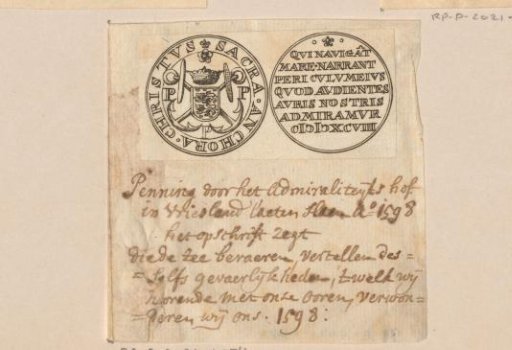 RP-P-2021-
CHRISTVS · SACRA · ANCHORA ·
P P
P
QUI NAVIGAT̂
MARE·NARRANT
PERICVLVM EIVS
QUOD AVDIENTES
AVRIS NOSTRIS
ADMIRAMVR
CIƆIƆXCVIII
Penning door het Admiraliteyts hof
in Vriesland laeten slaen Aº 1598
het opschrift zegt
die de zee bevaeren, vertellen des=
=selfs gevaerlijkheden, 't welk wij
hoorende met onse ooren, verwon=
=deren wij ons. 1598: